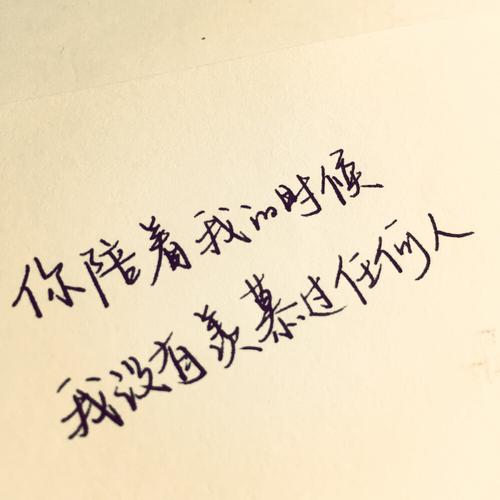 你陪着我的时候
我没有羡慕过任何人